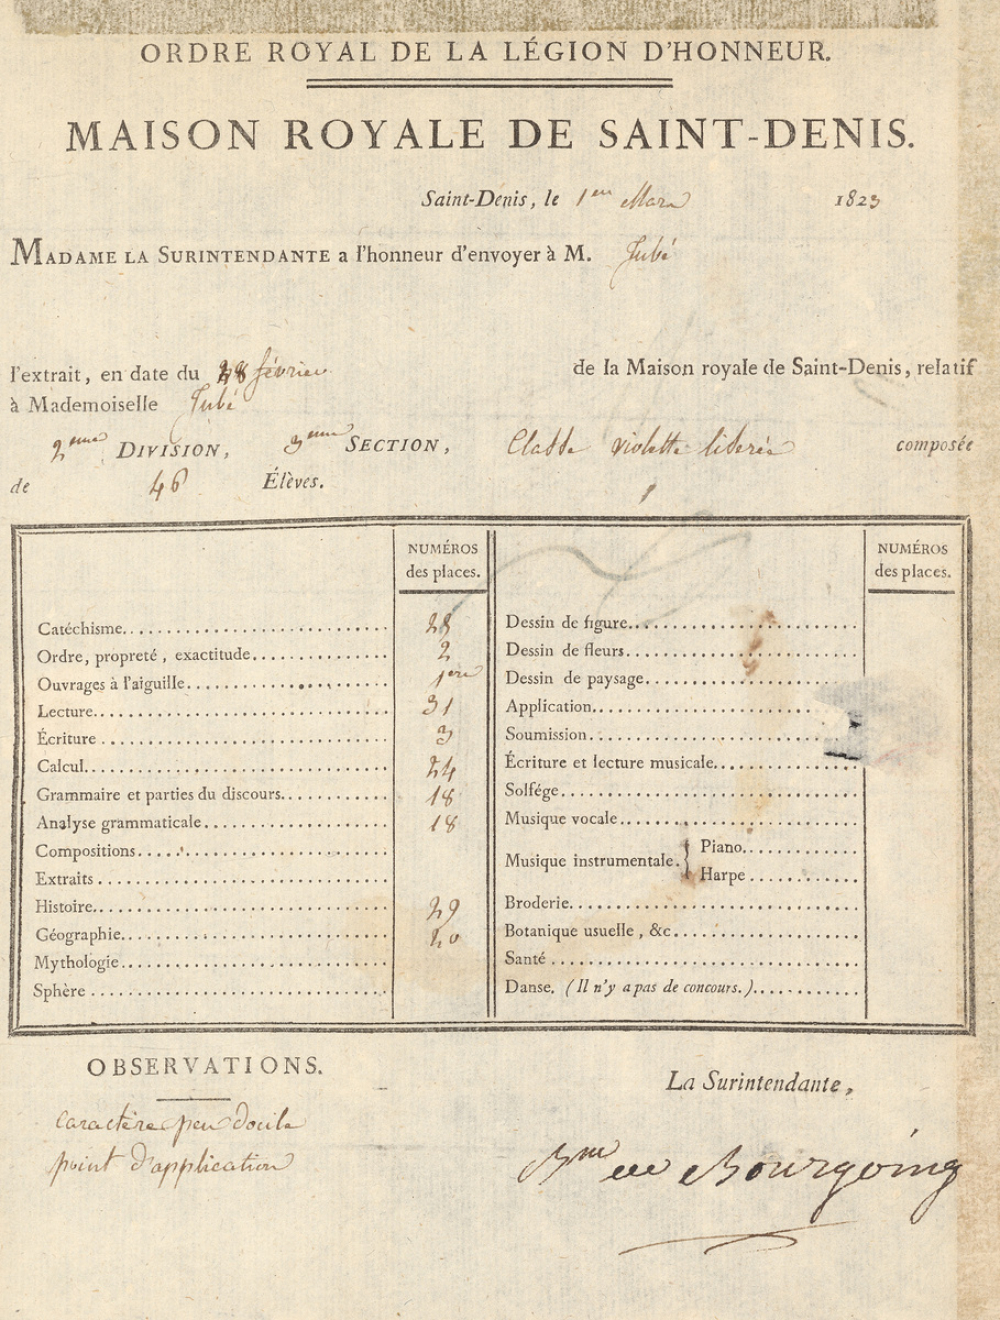 ORDRE ROYAL DE LA LÉGION D'HONNEUR.
MAISON ROYALE DE SAINT-DENIS.
Saint-Denis, le 1er Mars 1823
MADAME LA SURINTENDANTE a l'honneur d'envoyer à M. Jubé
l'extrait, en date du 28 février de la Maison royale de Saint-Denis, relatif
à Mademoiselle Jubé
2eme DIVISION, 3eme SECTION, Classe violette liserée composée
de 46 Élèves.
NUMÉROS
des places.
Catéchisme 28
Ordre, propreté, exactitude 2
Ouvrages à l'aiguille 1ere
Lecture 31
Écriture 3
Calcul 24
Grammaire et parties du discours 18
Analyse grammaticale 18
Compositions
Extraits
Histoire 29
Géographie 20
Mythologie
Sphère
NUMÉROS
des places.
Dessin de figure
Dessin de fleurs
Dessin de paysage
Application
Soumission
Écriture et lecture musicale
Solfége
Musique vocale
Musique instrumentale. { Piano
Harpe
Broderie
Botanique usuelle, &c
Santé
Danse. (Il n'y a pas de concours.)
OBSERVATIONS.
caractère peu docile
point d'application
La Surintendante,
Bne de Bourgoing